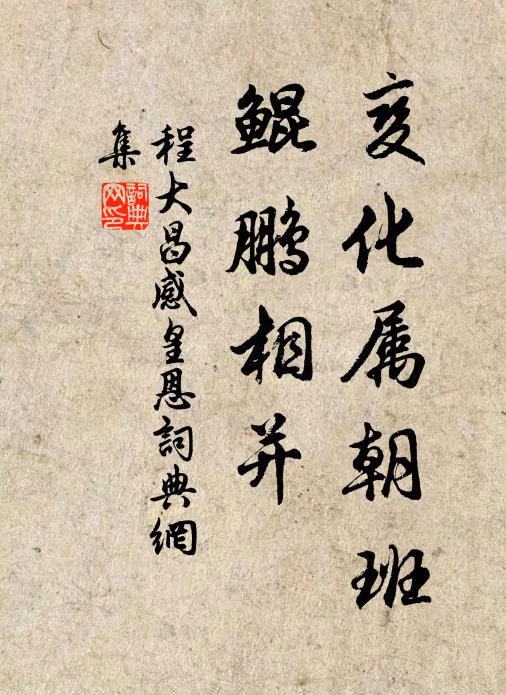 变化属朝班
鲲鹏相并
程大昌感皇恩詞典網
集
詞典
网印